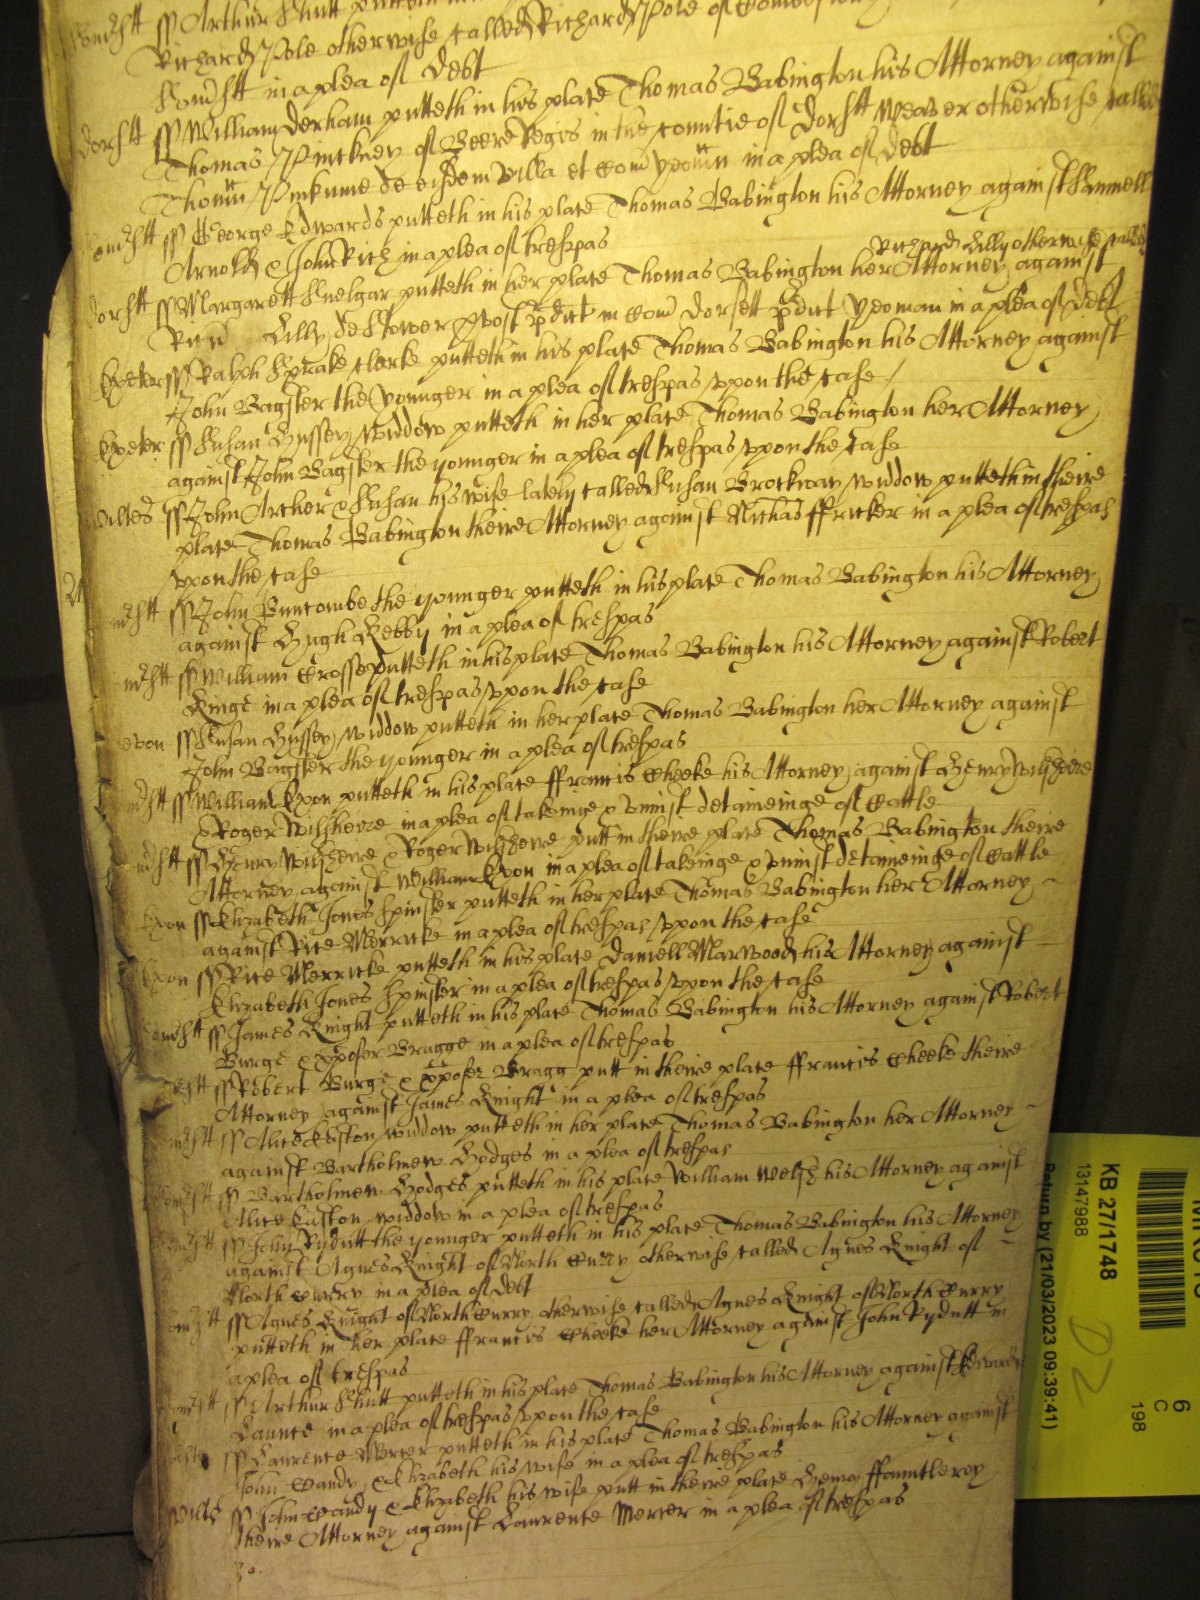 Somsett ss Arthur Shutt putteth in
Richard Pole otherwise called Richard Pole of
Somsett in a plea of Debt
Dorsett ss William Derham putteth in his place Thomas Babington his Attorney against
Thomas Pinckney of Beere Regis in the countie of Dorsett otherwise called
Thomas Pinkume de eisdem villa et Com yeoman in a plea of Debt
Somsett ss George Edwards putteth in his place Thomas Babington his Attorney against Sammell
Arnold & John Rich in a plea of trespas
Richard Lilly otherwise called
Dorsett ss Margarett Snelgar putteth in her place Thomas Babington her Attorney against
Ricu Lilly de Stower p̄dict in Com Dorsett p̄dict yeoman in a plea of Debt
Exeter ss Ralph Sprake Clerke putteth in his place Thomas Babington his Attorney against
John Bagster the younger in a plea of trespas upon the case
Exeter ss Susan Hussey widdow putteth in her place Thomas Babington her Attorney
against John Bagster the younger in a plea of trespas upon the case
Wiltes ss John Archer & Susan his wife lately called Susan Brockway widdow putteth in theire
place Thomas Babington theire Attorney against Nichas ffricker in a plea of trespas
upon the case
24
msett ss John Buncombe the younger putteth in his place Thomas Babington his Attorney
against Hugh Kebby in a plea of trespas
omsett ss William Crosse putteth in his place Thomas Babington his Attorney against Robert
Kinge in a plea of trespas upon the case
evon ss Susan Hussey widdow putteth in her place Thomas Babington her Attorney against
John Bagster the younger in a plea of trespas
omsett ss William Exon putteth in his place ffrancis Cheeke his Attorney against Henry Wilsheire
& Roger Wilsheire in a plea of takeinge & uniust detaineinge of Cattle
omsett ss Henry Wilsheire & Roger Wilsheire putt in theire place Thomas Babington theire
Attorney against William Exon in a plea of takeinge & uniust detaineinge of Cattle
Exon ss Elizabeth Jones Spinster putteth in her place Thomas Babington her Attorney
against Rice Merricke in a plea of trespas upon the case
Exon ss Rice Merricke putteth in his place Daniell Marwood his Attorney against
Elizabeth Jones Spinster in a plea of trespas upon the case
Somsett ss James Knight putteth in his place Thomas Babington his Attorney against Robert
Burge & Xpofer Bragge in a plea of trespas
sett ss Robert Burge & Xpofer Bragg putt in theire place ffrancis Cheeke theire
Attorney against James Knight in a plea of trespas
omsett ss Alice Easton widdow putteth in her place Thomas Babington her Attorney
against Bartholmew Hodges in a plea of trespas
Somsett ss Bartholmew Hodges putteth in his place William Welsh his Attorney against
Alice Easton widdow in a plea of trespas
Somsett ss John Rydutt the younger putteth in his place Thomas Babington his Attorney
against Agnes Knight of North Curry otherwise called Agnes Knight of
North Curry in a plea of Debt
omsett ss Agnes Knight of North Curry otherwise called Agnes Knight of North Curry
putteth in her place ffrancis Cheeke her Attorney against John Rydutt in
a plea of trespas
omsett ss Arthur Shutt putteth in his place Thomas Babington his Attorney against Edward
Launce in a plea of trespas upon the case
ss Laurence Mercer putteth in his place Thomas Babington his Attorney against
John Candy & Elizabeth his wife in a plea of trespas
Wiltes ss John Candy & Elizabeth his wife putt in theire place Henry ffauntleroy
theire Attorney against Laurence Mercer in a plea of trespas
30
KB 27/1748
13147988
Return by (21/03/2023 09:39:41)
D2
6
C
198